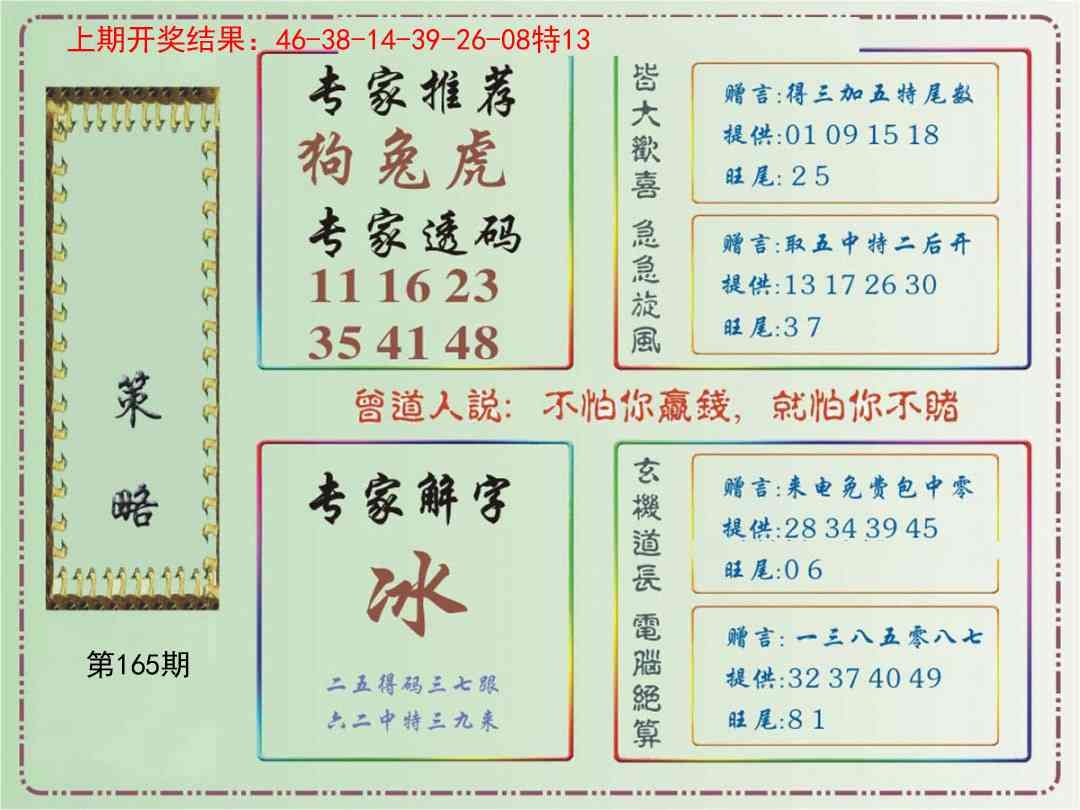 上期开奖结果：46-38-14-39-26-08特13
策略
第165期
专家推荐
狗兔虎
专家透码
11 16 23
35 41 48
皆大歡喜
赠言:得三加五特尾数
提供:01 09 15 18
旺尾: 2 5
急急旋風
赠言:取五中特二后开
提供:13 17 26 30
旺尾:3 7
曾道人説：不怕你赢錢，就怕你不賭
专家解字
冰
二五得码三七跟
六二中特三九来
玄機道長
赠言:来电免费包中零
提供:28 34 39 45
旺尾:0 6
電腦絕算
赠言:一三八五零八七
提供:32 37 40 49
旺尾:8 1